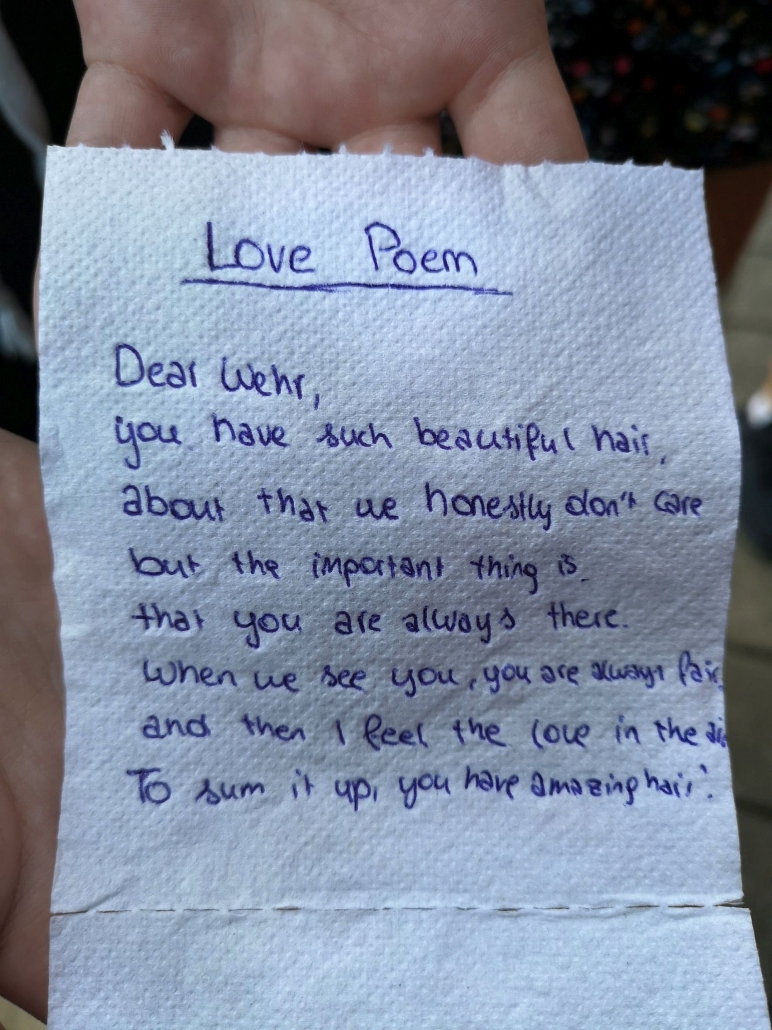 Love Poem
Dear Wehr,
you have such beautiful hair,
about that we honestly don't care
but the important thing is
that you are always there.
When we see you, you are always fair,
and then I feel the love in the air
To sum it up, you have amazing hair.